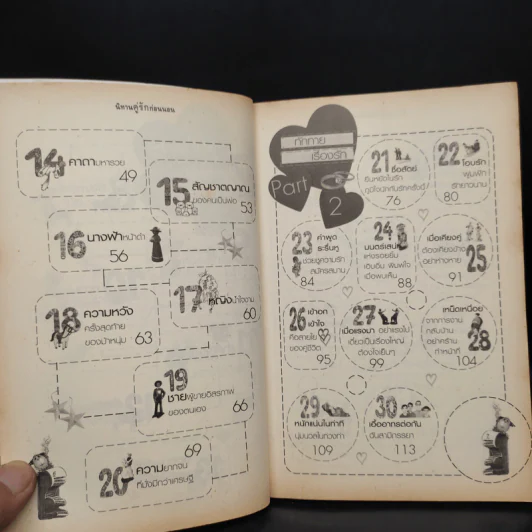 นิทานคู่รักก่อนนอน
14 คาถามหารวย
49
15 สัญชาตญาณ
ของคนเป็นพ่อ
53
16 นางฟ้าหน้าดำ
56
17 หญิงน้ำใจงาม
60
18 ความหวัง
ครั้งสุดท้าย
ของม้าหนุ่ม 63
19
ชายผู้ขายอิสรภาพ
ของตนเอง 66
69
20 ความยากจน
ที่มั่งมีกว่าเศรษฐี
ทักทาย
เรื่องรัก
Part 2
21 ซื่อสัตย์
76
22 โอบรัก
พุ่มฟัก
รักยาวนาน
80
23 คำพูด
ระรื่นหู
ช่วยชูความรัก
สมัครสมาน
84
24
มนตร์เสน่ห์
แห่งรอยยิ้ม
เอิบอิ่ม พิมพ์ใจ
เมื่อพบเห็น
88
เมื่อเคียงคู่
อย่าห่างหาย
25
91
26 เข้าอก
เข้าใจ
คือสายใย
ของคู่ชีวิต
95
27
เมื่อแรงมา อย่าแรงไป
เดี๋ยวเป็นเรื่องใหญ่
ต้องใจเย็นๆ
99
เหน็ดเหนื่อย
จากการงาน
กลับบ้าน
อย่าคร้าน
ทำหน้าที่
28
104
29
หนักแน่นในท่าที
นุ่มนวลในทางทำ
109
30
เอื้ออาทรต่อกัน
ฉันสามีภรรยา
113